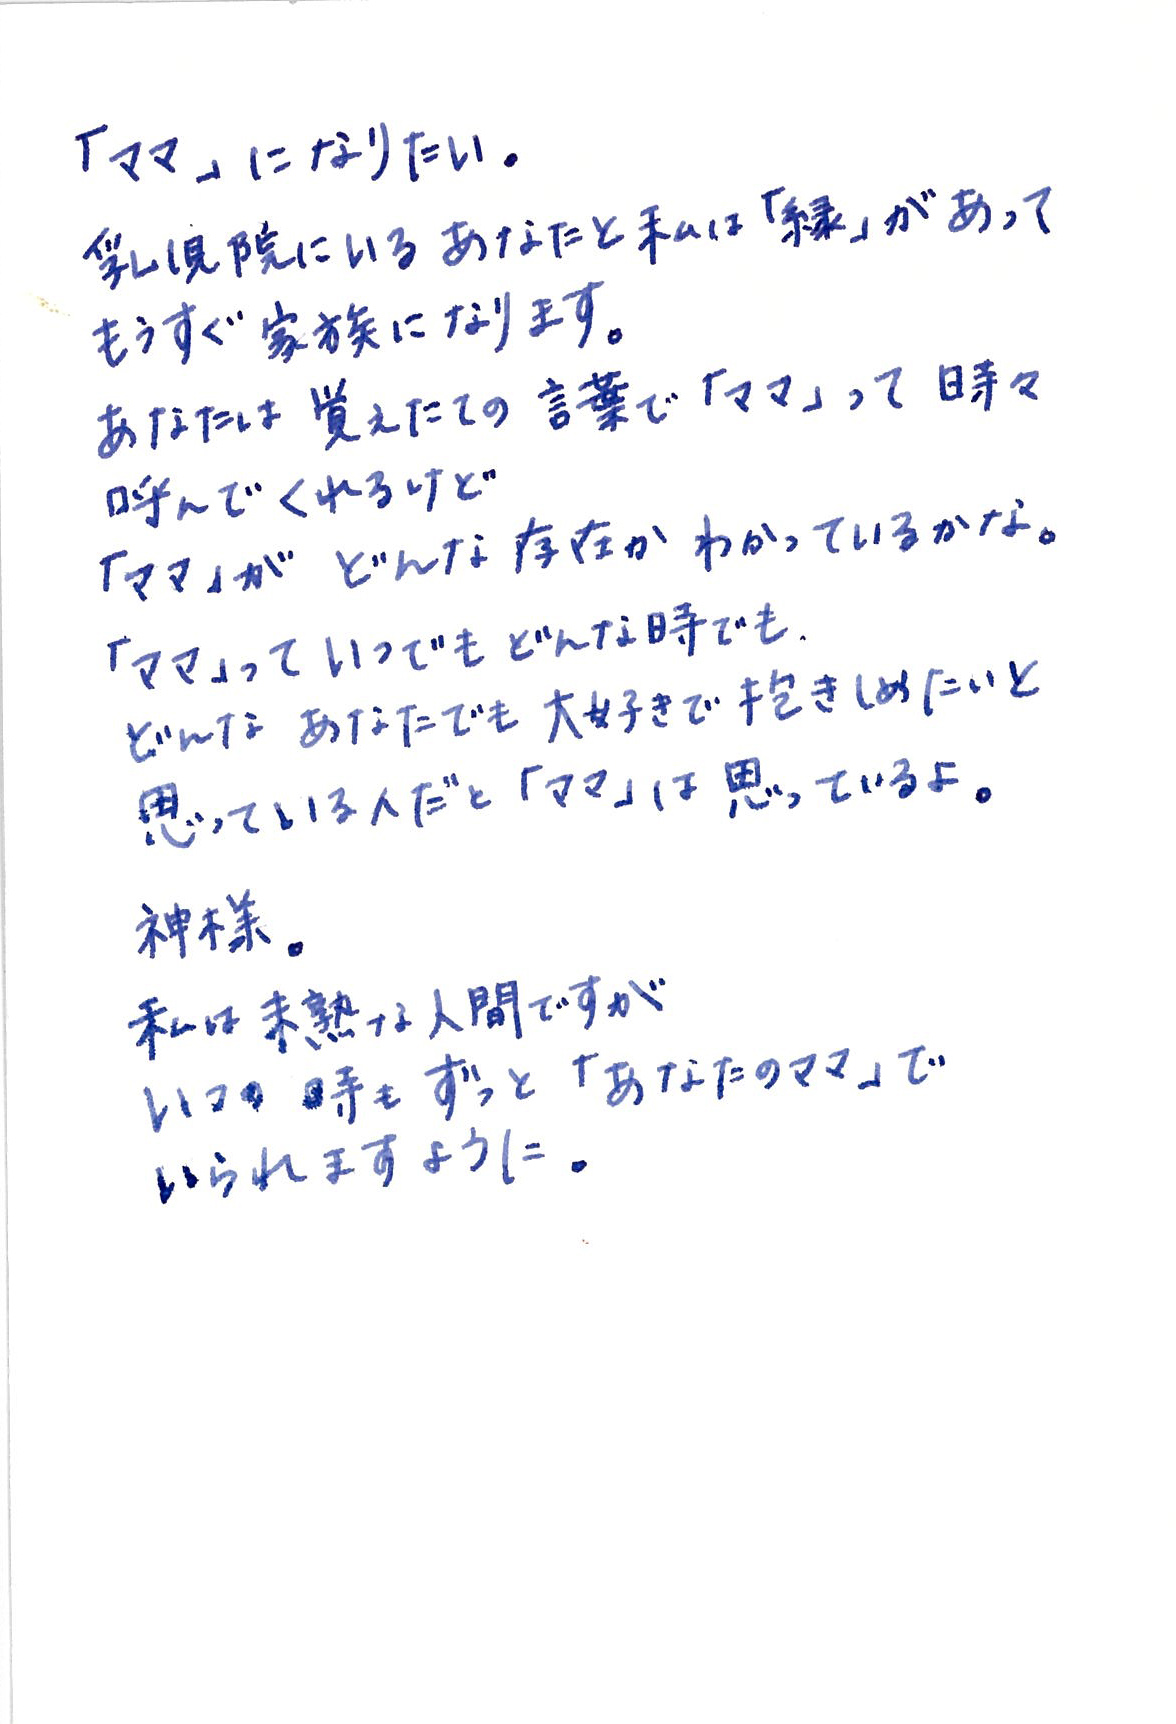 「ママ」になりたい。
乳児院にいるあなたと私は「縁」があって
もうすぐ家族になります。
あなたは覚えたての言葉で「ママ」って時々
呼んでくれるけど
「ママ」がどんな存在かわかっているかな。
「ママ」っていつでもどんな時でも、
どんなあなたでも大好きで抱きしめたいと
思っている人だと「ママ」は思っているよ。
神様。
私は未熟な人間ですが
いつの時もずっと「あなたのママ」で
いられますように。